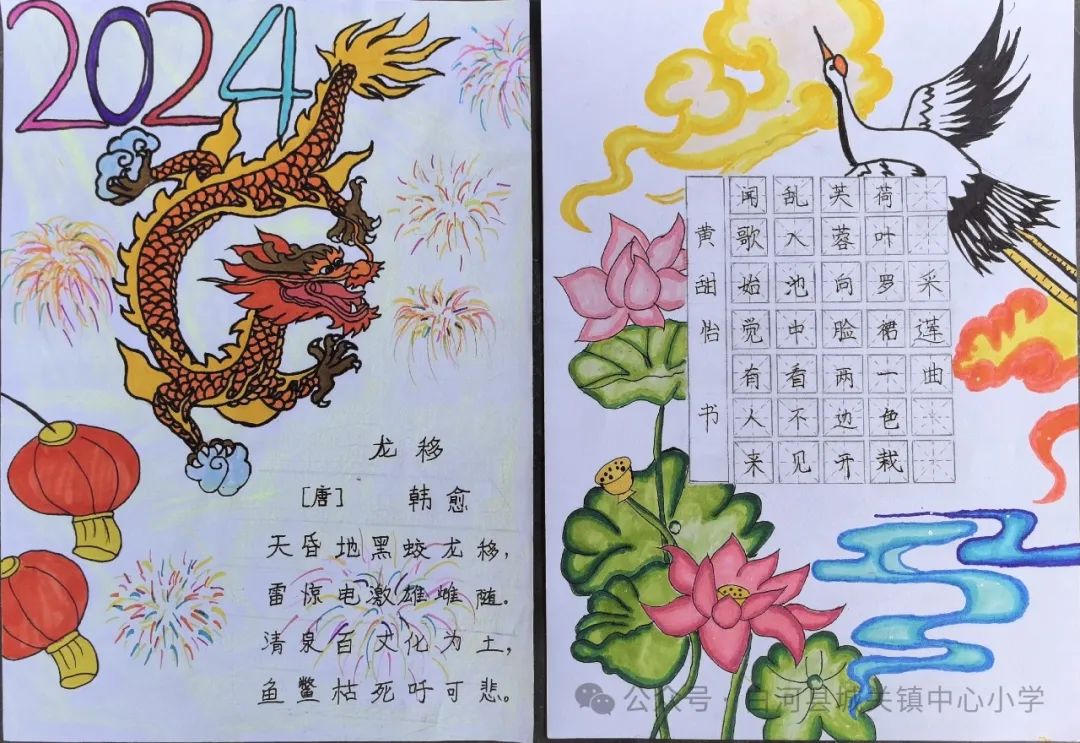 2024
龙移
[唐] 韩愈
天昏地黑蛟龙移，
雷惊电激雄雌随。
清泉百丈化为土，
鱼鳖枯死吁可悲。
采莲曲
荷叶罗裙一色栽
芙蓉向脸两边开
乱入池中看不见
闻歌始觉有人来
黄甜怡书
公众号·白河县城关镇中心小学